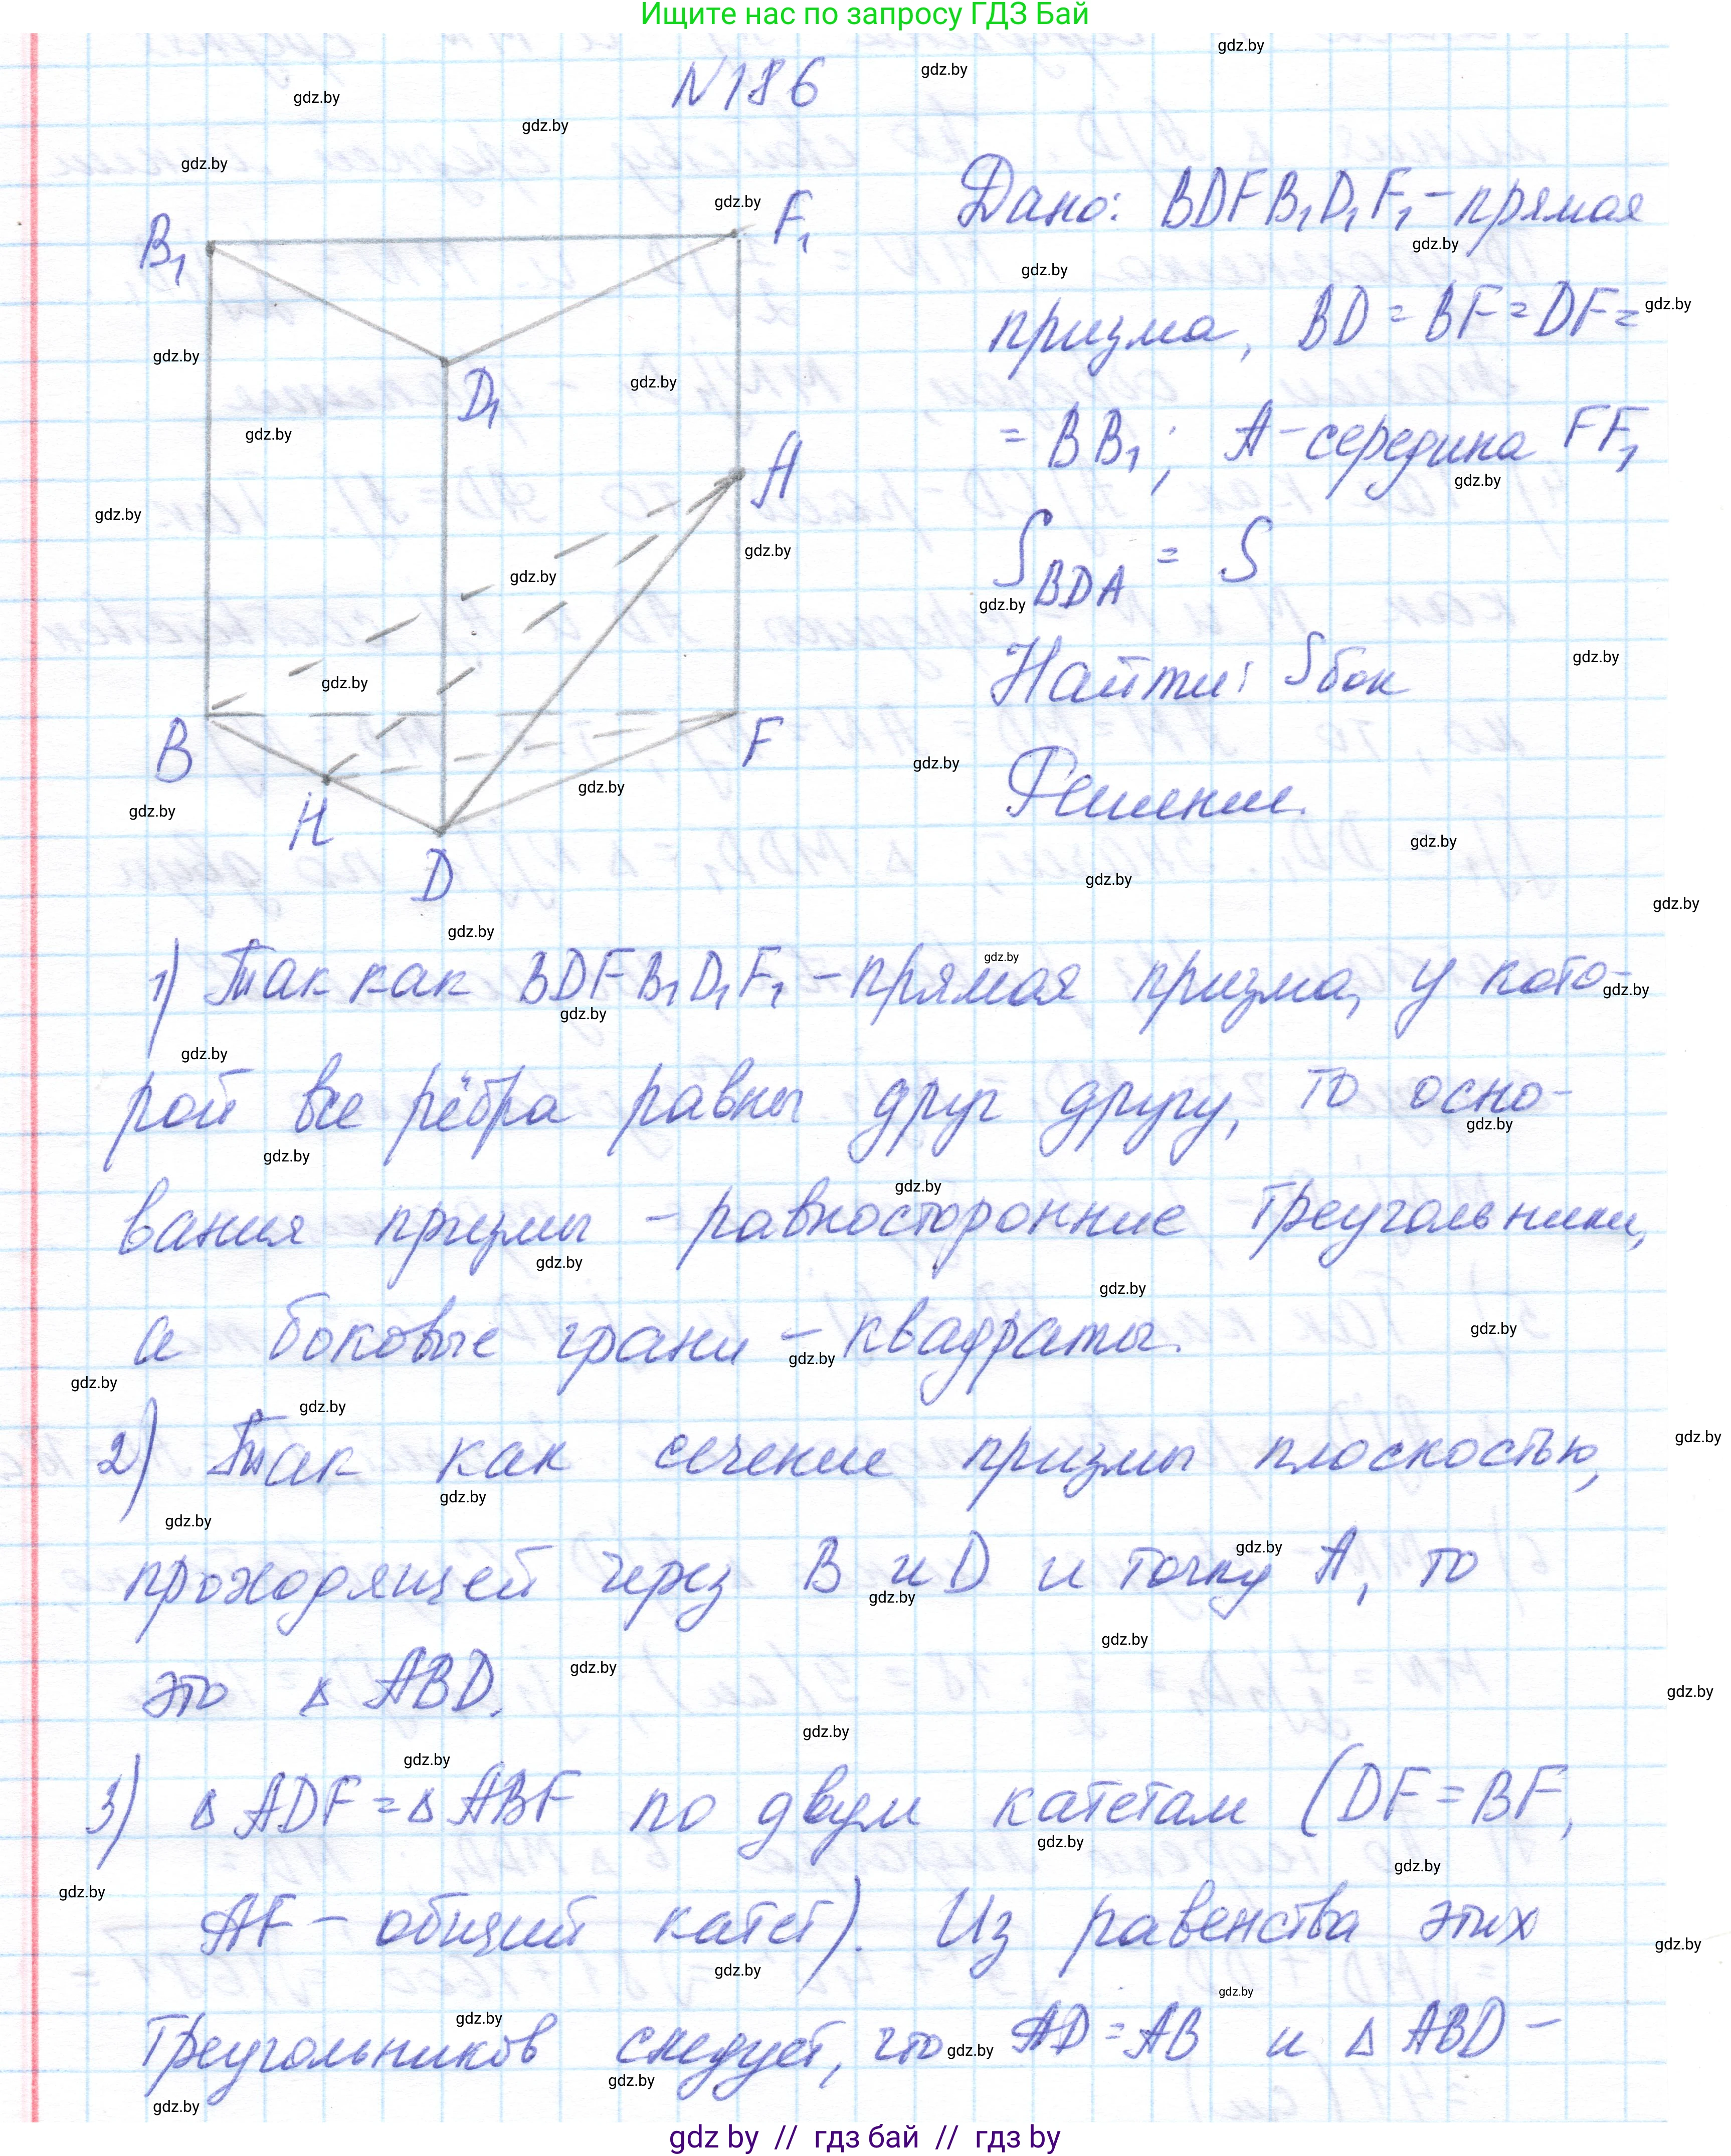 Ищите нас по запросу ГДЗ Бай
N186
Дано: BDFB₁D₁F₁ - прямая
призма, BD = BF = DF =
= BB₁; A - середина FF₁
S_BDA = S
Найти: Sбок
Решение.
B₁
F₁
D₁
A
B
F
H
D
1) Так как BDFB₁D₁F₁ - прямая призма, у кото-
рой все рёбра равны друг другу, то осно-
вания призмы - равносторонние треугольники,
а боковые грани - квадраты.
2) Так как сечение призмы плоскостью,
проходящей через B и D и точку A, то
это △ ABD.
3) △ ADF = △ ABF по двум катетам (DF = BF,
AF - общий катет). Из равенства этих
треугольников следует, что AD = AB и △ ABD -
gdz by // гдз бай // гдз by